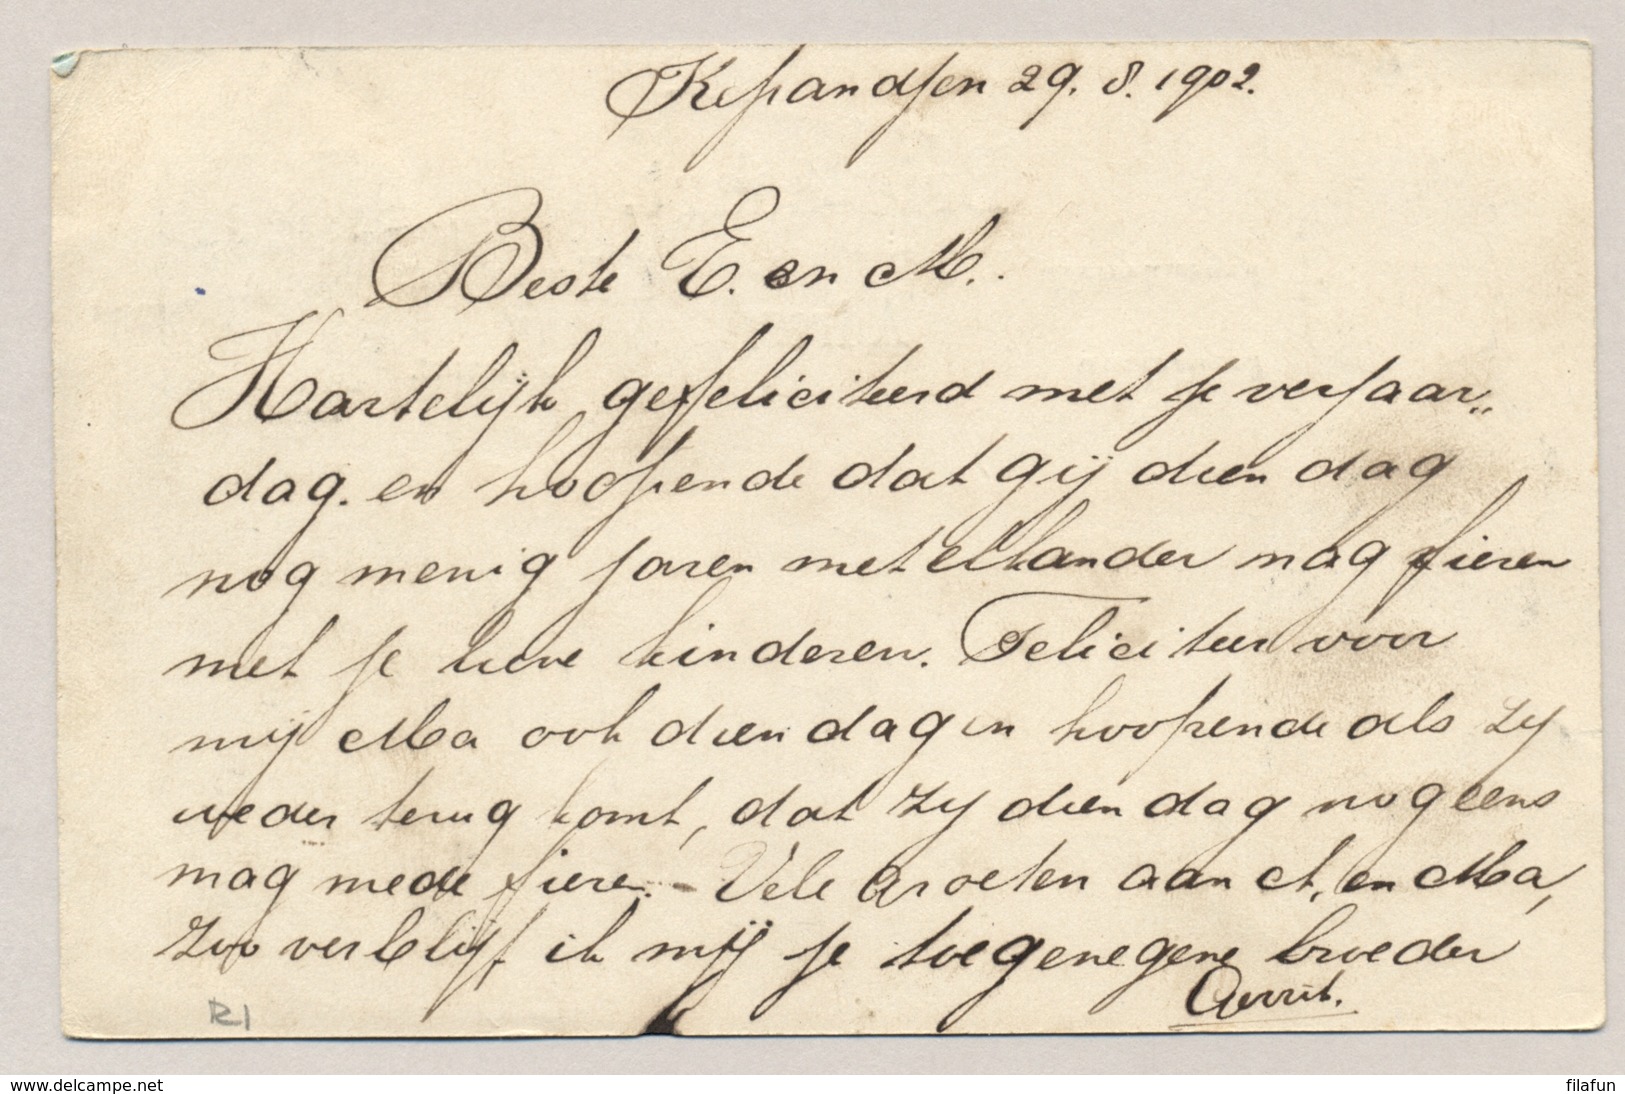 Kepandjen 29. 8. 1902.
Beste E. en M.
Hartelijk gefeliciteerd met je verjaar„
dag. en hoopende dat gij dien dag
nog menig jaren met elkander mag fieren
met je lieve kinderen. Feliciteer voor
mij Ma ook dien dag en hoopende als zy
weder terug komt, dat zy dien dag nog eens
mag mede fieren. - Vele Groeten aan et, en Ma,
zoo verblijf ik mij je toegenegene broeder
Gerrit.
R1
www.delcampe.net
filafun